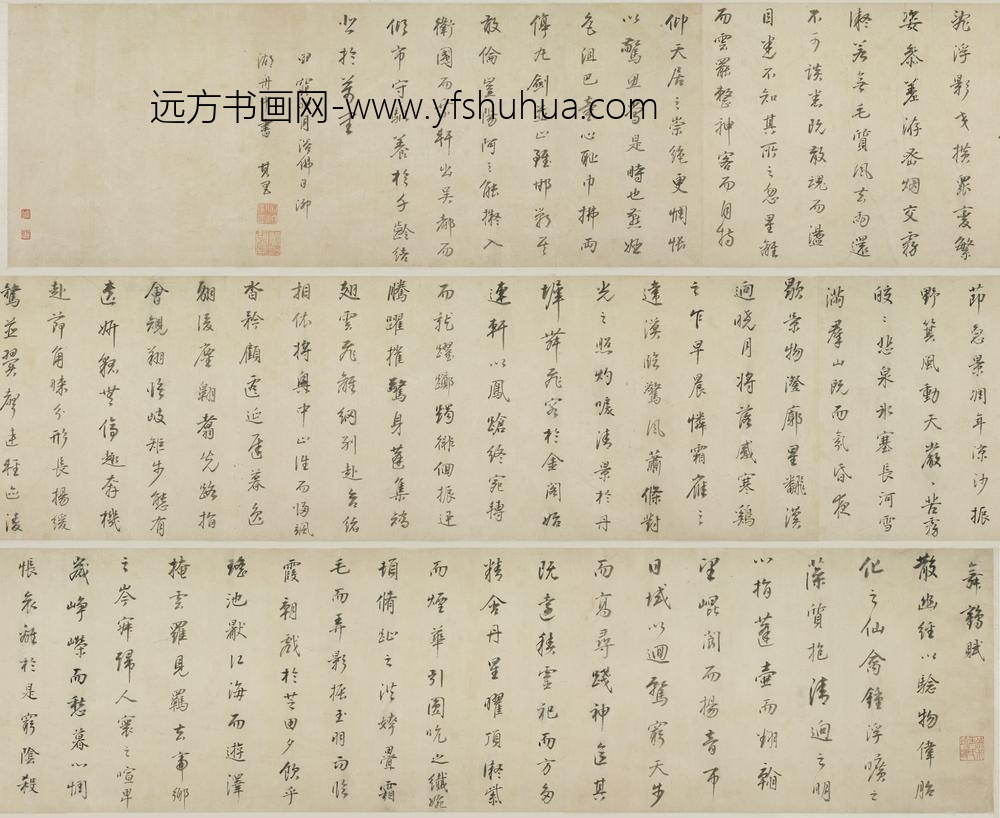 舞鶴賦
散幽經以驗物偉胎
化之仙禽鍾浮曠之
藻質抱清迥之明
心指蓬壺而翔翰
望崐閬而揚音帀
日域以迴騖窮天步
而高尋踐神區其
既遠積靈祀而方多
精含丹星曜頂凝紫
而煙華引圓吭之纖婉
頓脩趾之洪姱疊霜
毛而弄影振玉羽而臨
霞朝戲於芝田夕飲乎
瑤池厭江海而遊澤
掩雲羅見羈去帝鄉
之岑寂歸人寰之喧卑
歲崢嶸而愁暮心惆
悵哀離於是窮陰殺
節急景凋年涼沙振
野箕風動天嚴〻苦霧
皎〻悲泉冰塞長河雪
滿群山既而氛昏夜
歇景物澄廓星翻漢
迴曉月將落感寒雞
之乍早晨憐霜雁之
違漠臨驚風蕭條對
光之照灼唳清景於丹
墀舞飛容於金閣始
連軒以鳳蹌終宛轉
而龍躍躑躅徘徊振迅
騰躍摧驚身蓬集矯
翅雲飛離綱別赴合緒
相依將興中止往而歸颯
沓矜顧遷延遲暮逸
翮後塵翱翥先路指
會規翔臨岐矩步態有
遺妍貌無停趣奔機
赴節角睞分形長揚緩
騖並翼連聲輕迹凌
亂浮影交橫眾變繁
姿參差洊密烟交霧
凝若無毛質風去雨還
不可談悉既散魂而盪
目迷不知其所之忽星離
而雲罷整神容而自持
仰天居之崇絕更惆悵
以驚思當是時也燕姬
色沮巴童心恥巾拂兩
停丸劍雙止雖邯鄲其
敢倫豈陽阿之能擬入
衛國而乘軒出吳都而
傾市守馴養於千齡結
悲於萬里
甲月浴佛日御
湖舟書 其昌
远方书画网-www.yfshuhua.com